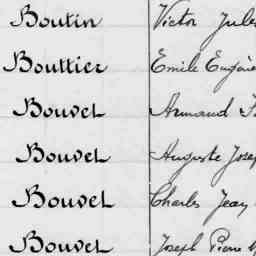 Boutin Victor Jules
Bouttier Emile Eugène
Bouvet Armand
Bouvet Auguste Josep
Bouvet Charles Jean
Bouvet Joseph Pierre